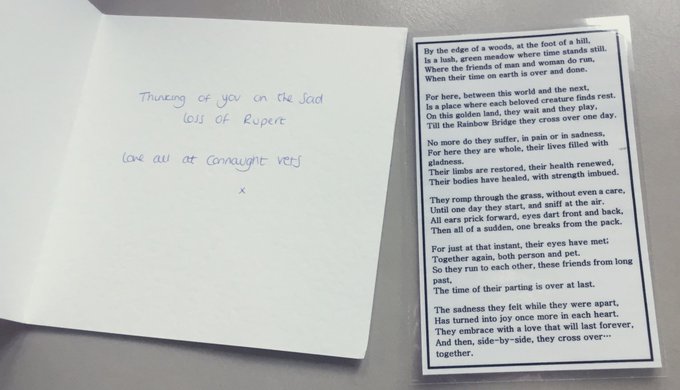 Thinking of you on the Sad
loss of Rupert
Love all at Connaught vets
x
By the edge of a woods, at the foot of a hill,
Is a lush, green meadow where time stands still.
Where the friends of man and woman do run,
When their time on earth is over and done.
For here, between this world and the next,
Is a place where each beloved creature finds rest.
On this golden land, they wait and they play,
Till the Rainbow Bridge they cross over one day.
No more do they suffer, in pain or in sadness,
For here they are whole, their lives filled with
gladness.
Their limbs are restored, their health renewed,
Their bodies have healed, with strength imbued.
They romp through the grass, without even a care,
Until one day they start, and sniff at the air.
All ears prick forward, eyes dart front and back,
Then all of a sudden, one breaks from the pack.
For just at that instant, their eyes have met;
Together again, both person and pet.
So they run to each other, these friends from long
past,
The time of their parting is over at last.
The sadness they felt while they were apart,
Has turned into joy once more in each heart.
They embrace with a love that will last forever,
And then, side-by-side, they cross over…
together.